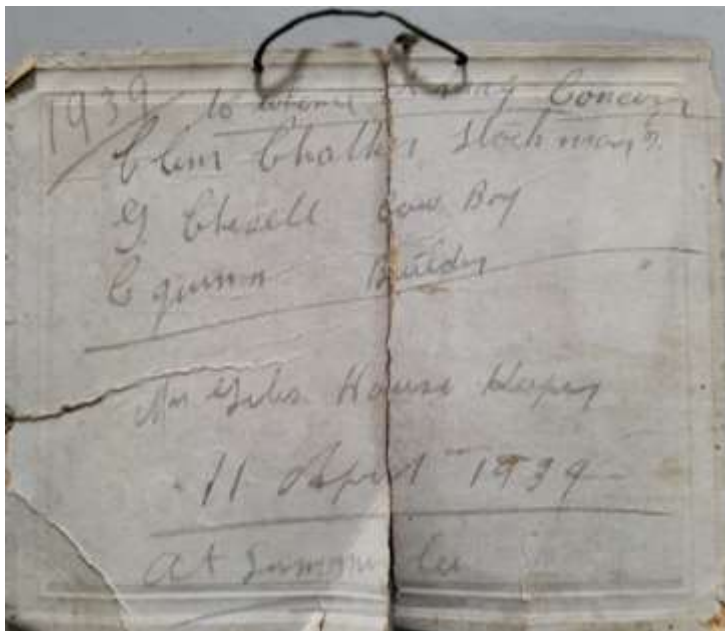 1939 to whom it may Concern
Clem Stockman
G Chisell Cow Boy
C Quinn Builder "
Mrs Giles House Keeper
11 April 1939
At